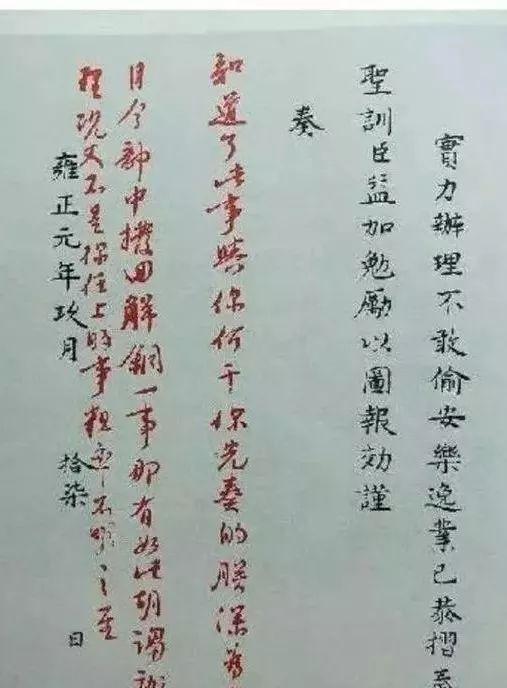 實力辦理不敢偷安樂逸業已恭摺
聖訓臣益加勉勵以圖報効謹
奏
知道了此事與你何干你先奏的朕深
日今部中撥回解銅一事那有如此胡
理況又不是你任上時事粗率不堪之至
雍正元年玖月拾柒日